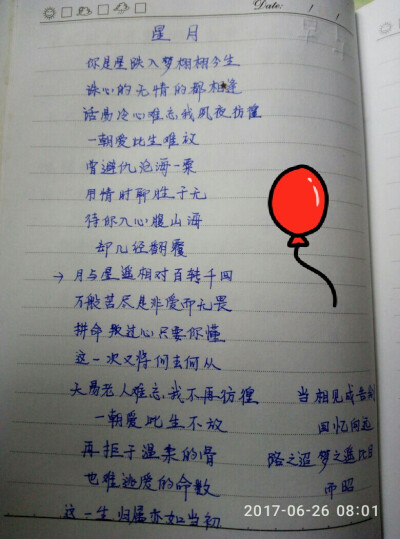 Date: / /
星 月
你是星跌入梦栩栩今生
诛心的无情的都相逢
话易冷心难忘我夙夜彷徨
一朝爱比生难放
曾避仇沧海一粟
用情时聊胜于无
待你入心腹山海
却几经翻覆
→ 月与星遥相对百转千回
万般苦尽是非爱而无畏
拼命救过心只要你懂
这一次又将何去何从
天易老人难忘我不再彷徨
一朝爱比生不放
再拒于温柔的骨
也难逃爱的命数
这一生归属亦如当初
当相见成告别
回忆向远
路之迢梦之遥比目
而昭
2017-06-26 08:01